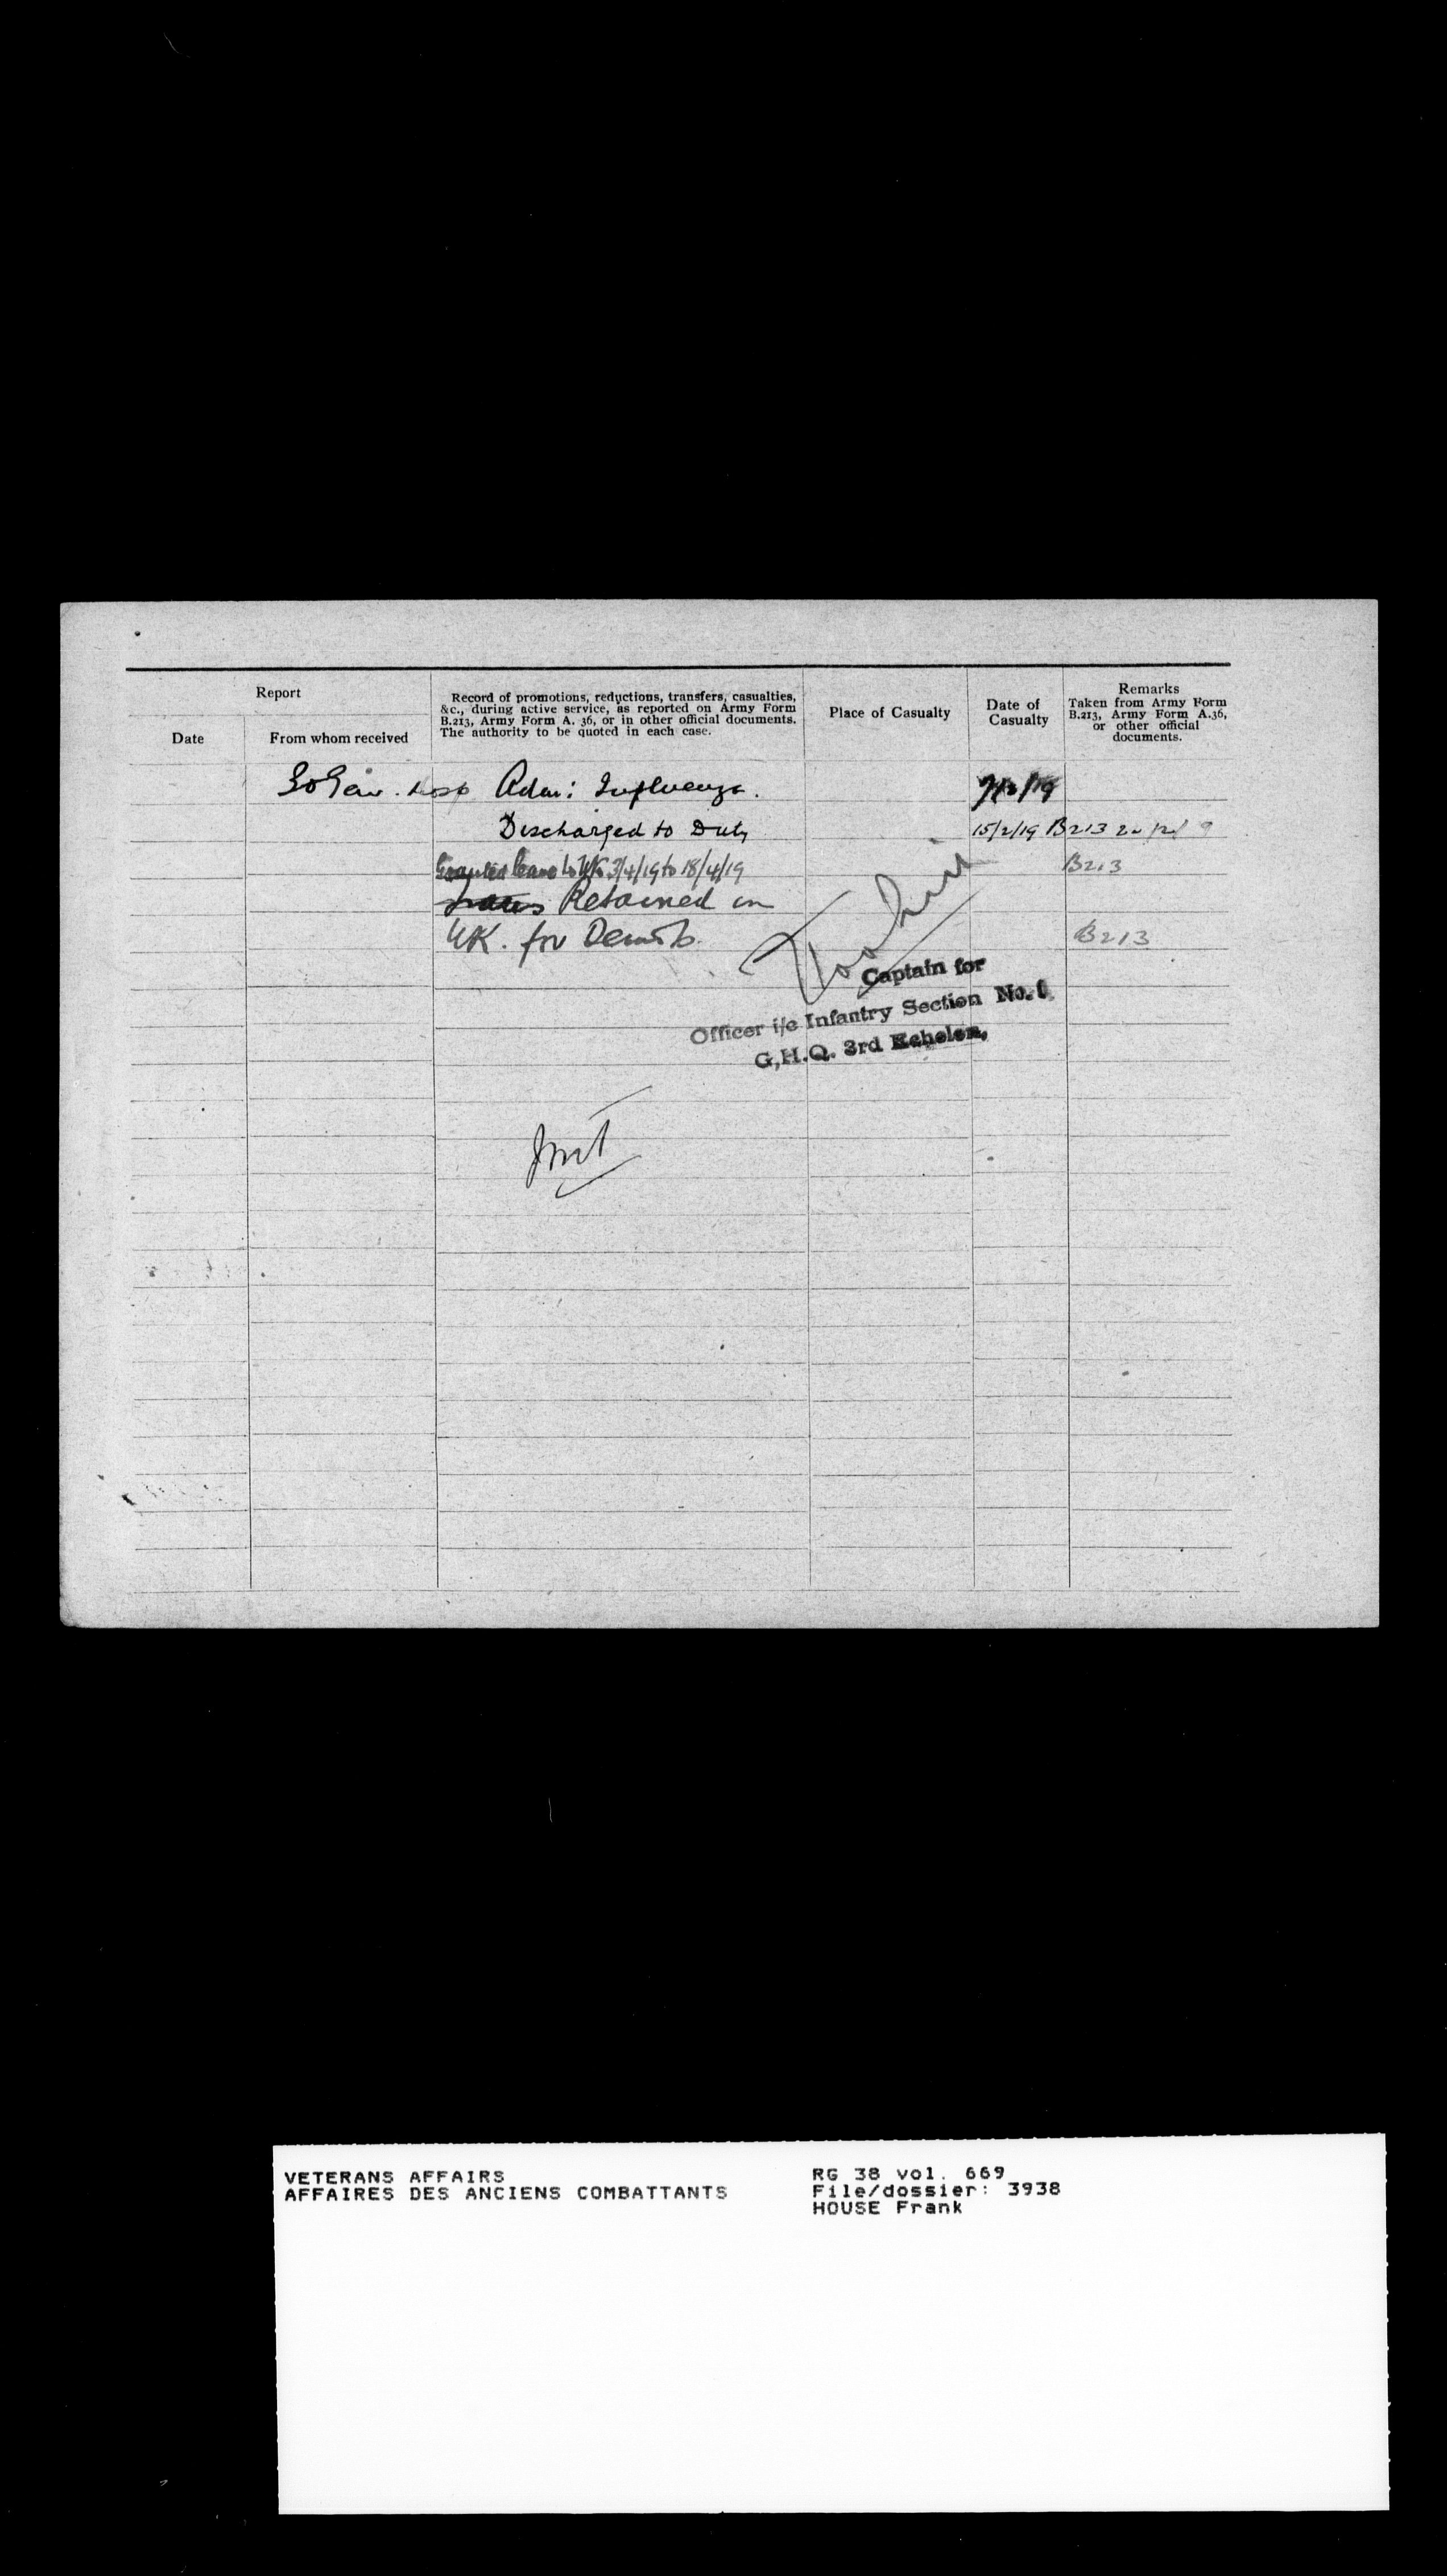 Report
Date
From whom received
Record of promotions, reductions, transfers, casualties,
&c., during active service, as reported on Army Form
B.213, Army Form A. 36, or in other official documents.
The authority to be quoted in each case.
Place of Casualty
Date of
Casualty
Remarks
Taken from Army Form
B.213, Army Form A.36,
or other official
documents.
Hosp Adm: Influenza.
Discharged to Duty 15/2/19 B213
Granted leave to UK 3/4/19 to 18/4/19 B213
Retained in
UK. for Demob. B213
Captain for
Officer i/c Infantry Section No. 1
G.H.Q. 3rd Echelon,
VETERANS AFFAIRS
AFFAIRES DES ANCIENS COMBATTANTS
RG 38 vol. 669
File/dossier: 3938
HOUSE Frank